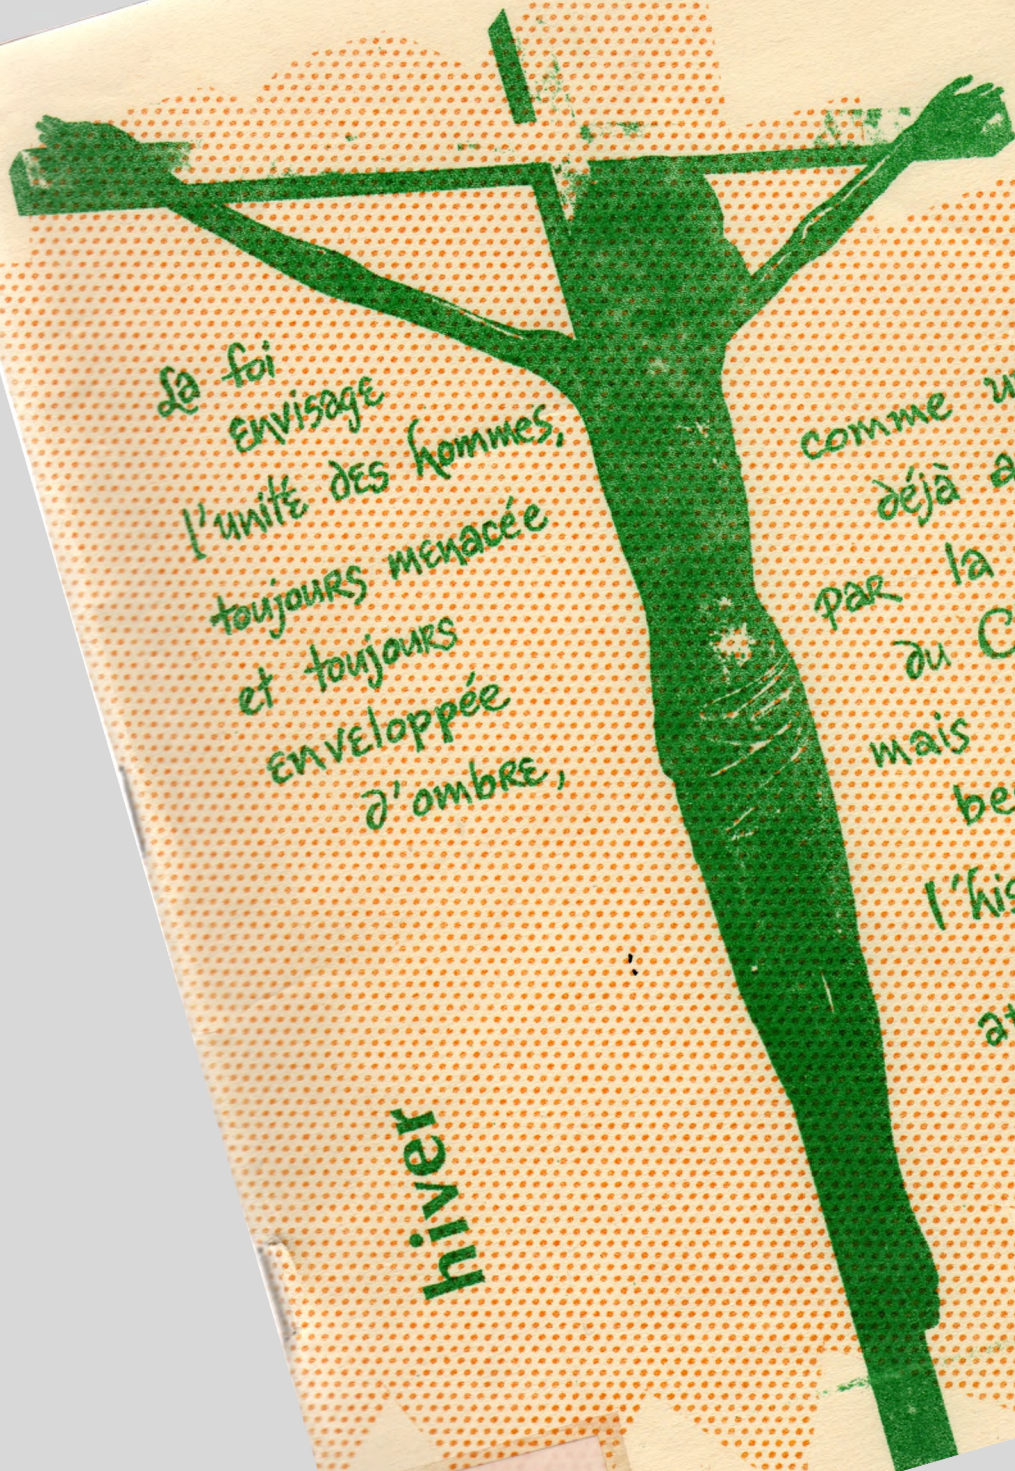 La foi
envisage
l'unité des hommes,
toujours menacée
et toujours
enveloppée
d'ombre,
comme
déjà
par la
du
mais
hiver